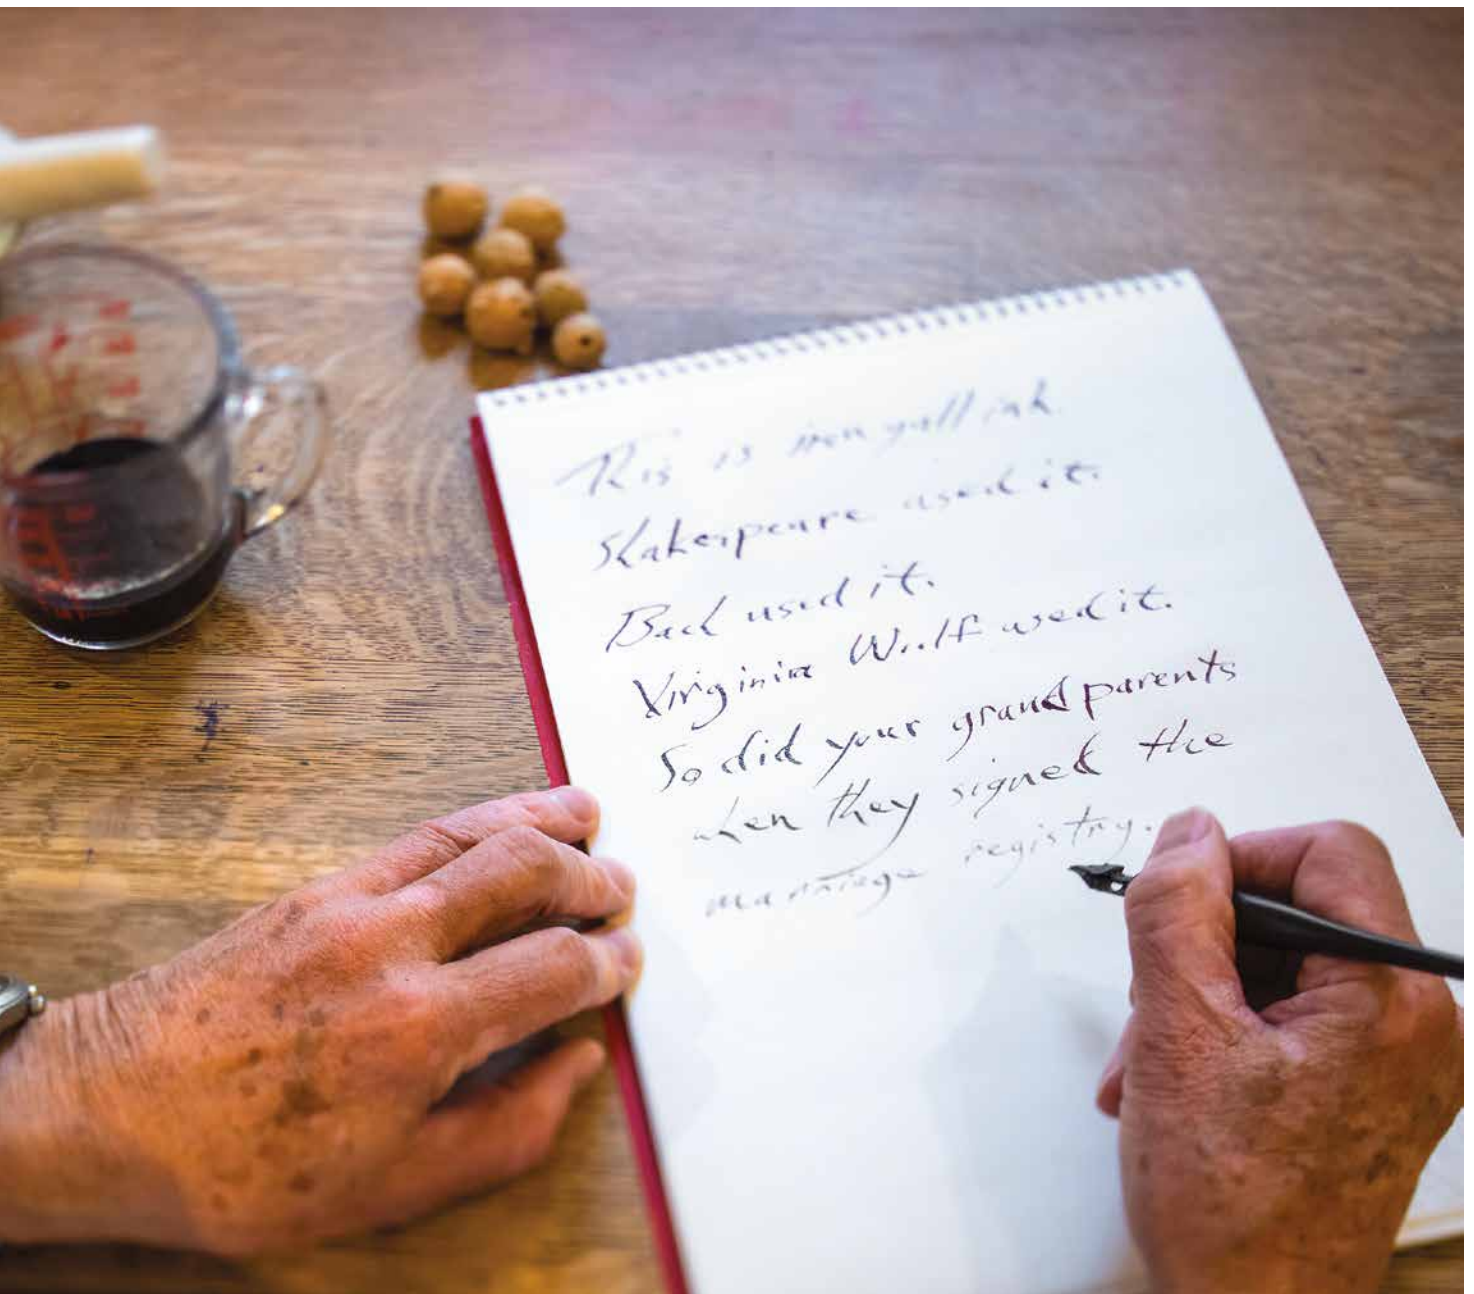 This is iron gall ink
Shakespeare used it.
Bach used it.
Virginia Woolf used it.
So did your grandparents
when they signed the
marriage registry.